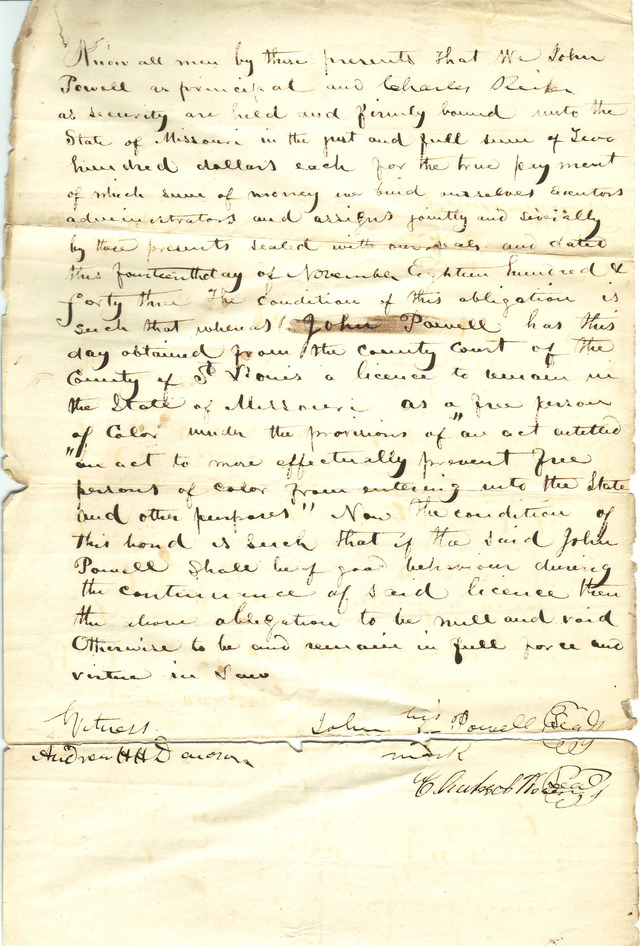 Know all men by these presents that We John
Powell as principal and Charles
as security are held and firmly bound unto the
State of Missouri in the just and full sum of Two
hundred dollars each for the true payment
of which sum of money we bind ourselves executors
administrators and assigns jointly and severally
by these presents sealed with our seals and dated
this fourteenth day of November Eighteen hundred &
forty three The condition of this obligation is
such that whereas John Powell has this
day obtained from the county court of the
County of St Louis a licence to remain in
the State of Missouri as a free person
of Color under the provisions of "an act entitled
"an act to more effectually prevent free
persons of color from entering into the State
and other purposes" Now the condition of
this bond is such that if the said John
Powell Shall be of good behaviour during
the continuance of said licence then
the above obligation to be null and void
Otherwise to be and remain in full force and
virtue in Law
Witness John his Powell Seal
Andrew HH mark
Seal